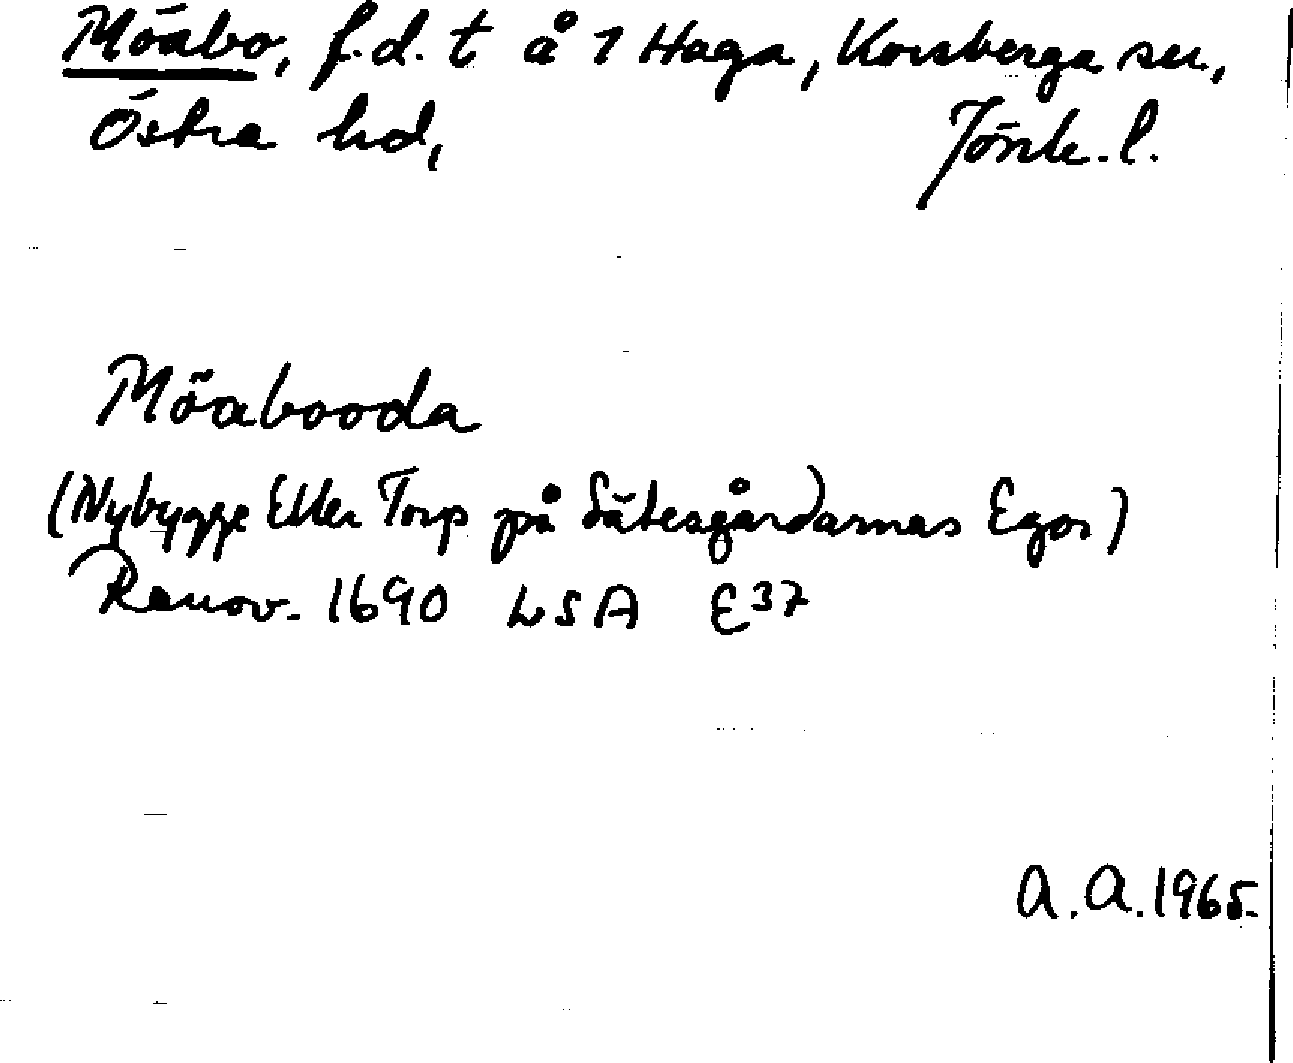 Möabo, f.d. t å 1 Haga, Korsberga sn,
Östra hd, Jönk. l.
Möabooda
(Nybygge Eller Torp på Sätesgårdarnas Egor)
Renov. 1690 LSA E37
A. A. 1965.